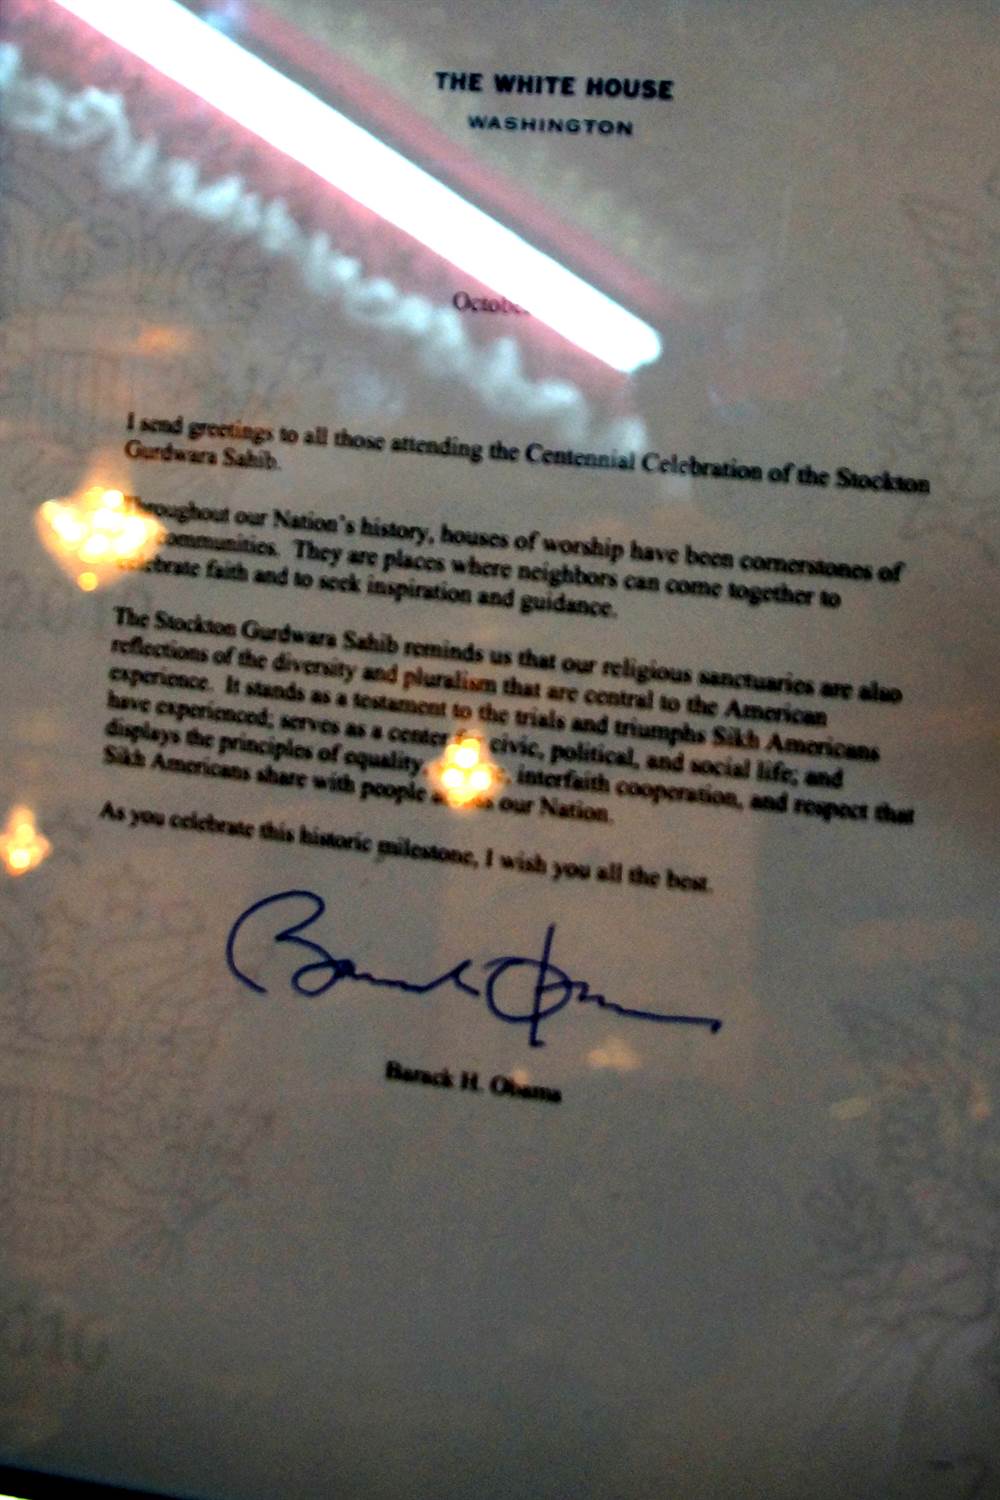 THE WHITE HOUSE
WASHINGTON
October
I send greetings to all those attending the Centennial Celebration of the Stockton
Gurdwara Sahib.
Throughout our Nation's history, houses of worship have been cornerstones of
communities. They are places where neighbors can come together to
celebrate faith and to seek inspiration and guidance.
The Stockton Gurdwara Sahib reminds us that our religious sanctuaries are also
reflections of the diversity and pluralism that are central to the American
experience. It stands as a testament to the trials and triumphs Sikh Americans
have experienced; serves as a center for civic, political, and social life; and
displays the principles of equality, interfaith cooperation, and respect that
Sikh Americans share with people across our Nation.
As you celebrate this historic milestone, I wish you all the best.
Barack H. Obama